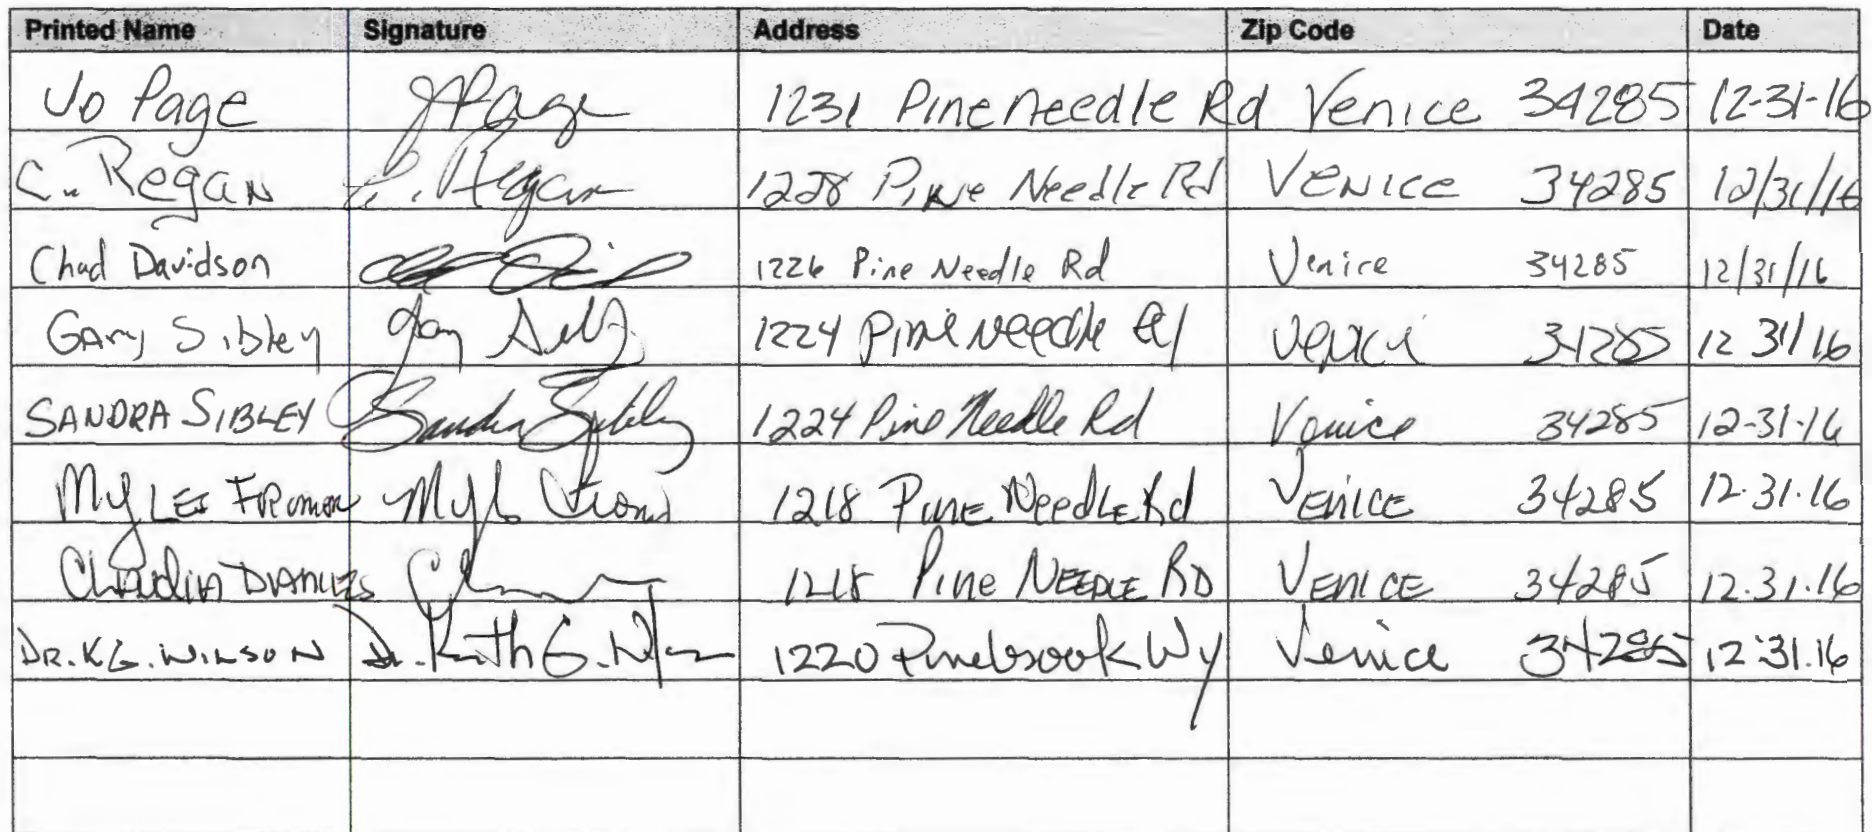 Printed Name Signature Address Zip Code Date
Jo Page JPage 1231 Pine needle Rd Venice 34285 12-31-16
C. Regan C. Regan 1228 Pine Needle Rd Venice 34285 12/31/16
Chad Davidson 1226 Pine Needle Rd Venice 34285 12/31/16
Gary Sibley Gary 1224 Pine needle Venice 34285 12 31/16
SANDRA SIBLEY Sandra Sibley 1224 Pine Needle Rd Venice 34285 12-31-16
Myles 1218 Pine Needle Rd Venice 34285 12.31.16
Claudia 1218 Pine Needle RD Venice 34285 12.31.16
DR. K G. WILSON Dr. Keith G. 1220 Pinebrook Wy Venice 34285 12.31.16